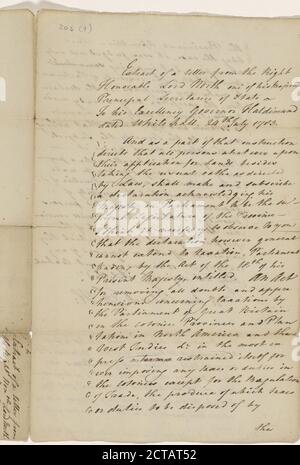 202 (4)
Extract of a letter from the Right
Honorable Lord North one of his Majesty's
Principal Secretaries of State
To his Excellency Governor Haldimand
dated White hall 24th July 1783.
And as a part of that instruction
directs that all persons whatsoever upon
their application for lands besides
taking the usual oaths as directed
by Law, shall make and subscribe
a declaration acknowledging his
Majesty in Parliament to be the su-
preme Legislature of the Province
I think it necessary to observe to you
that the declaration however general
cannot extend to taxation, Parliament
having by the Act of the 18th of his
Present Majesty intitled, An Act
for removing all doubts and appre
hensions concerning taxations by
the Parliament of Great Britain
in the colonies Provinces and Plan
tations in North America and the
West Indies &c in the most ex
press manner restrained itself for
ever imposing any taxes or duties in
the Colonies except for the Regulation
of Trade, the produce of which taxes
or duties to be disposed of by
the
Extract of a letter from
alamy
Image ID: 2CTAT52
www.alamy.com